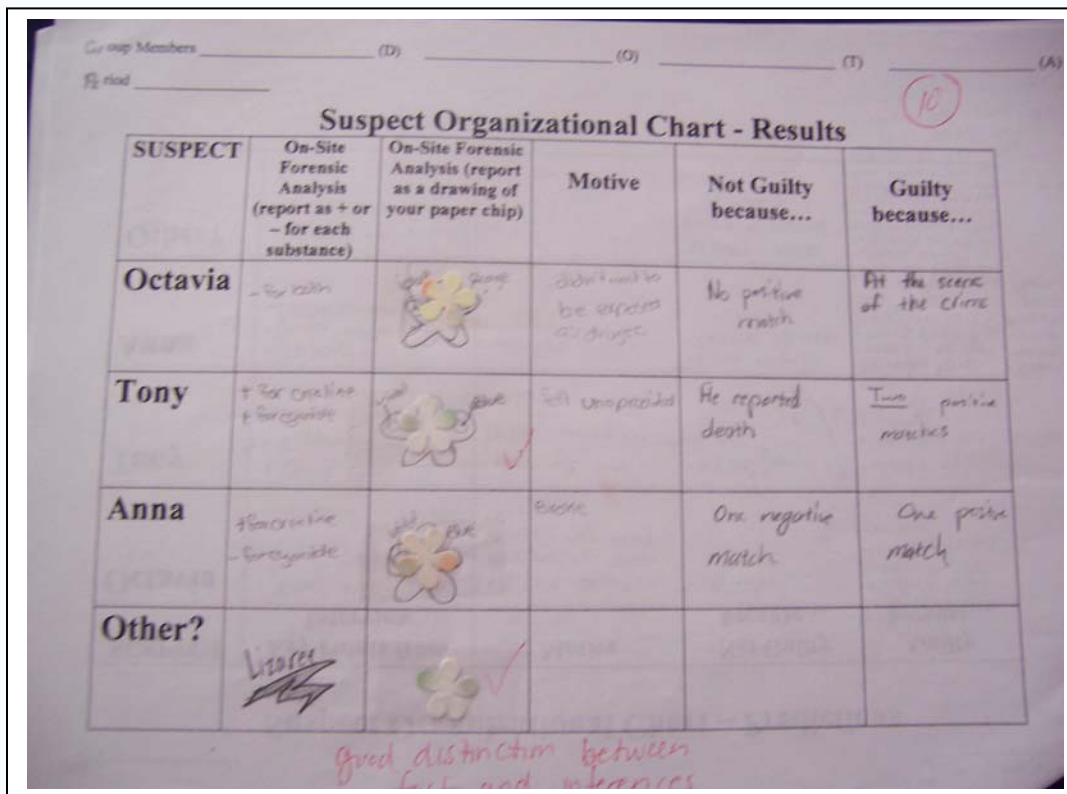 Group Members (D) (O) (T) (A)
Period
10
Suspect Organizational Chart - Results
SUSPECT
On-Site
Forensic
Analysis
(report as + or
– for each
substance)
On-Site Forensic
Analysis (report
as a drawing of
your paper chip)
Motive
Not Guilty
because...
Guilty
because...
Octavia
- for both
didn't want to
be exposed
as
No positive
match
At the scene
of the crime
Tony
+ for
+ for cyanide
Blue
felt
He reported
death
Two positive
matches
Anna
+ for
- for cyanide
Blue
One negative
match
One positive
match
Other?
good distinction between
fact and inferences